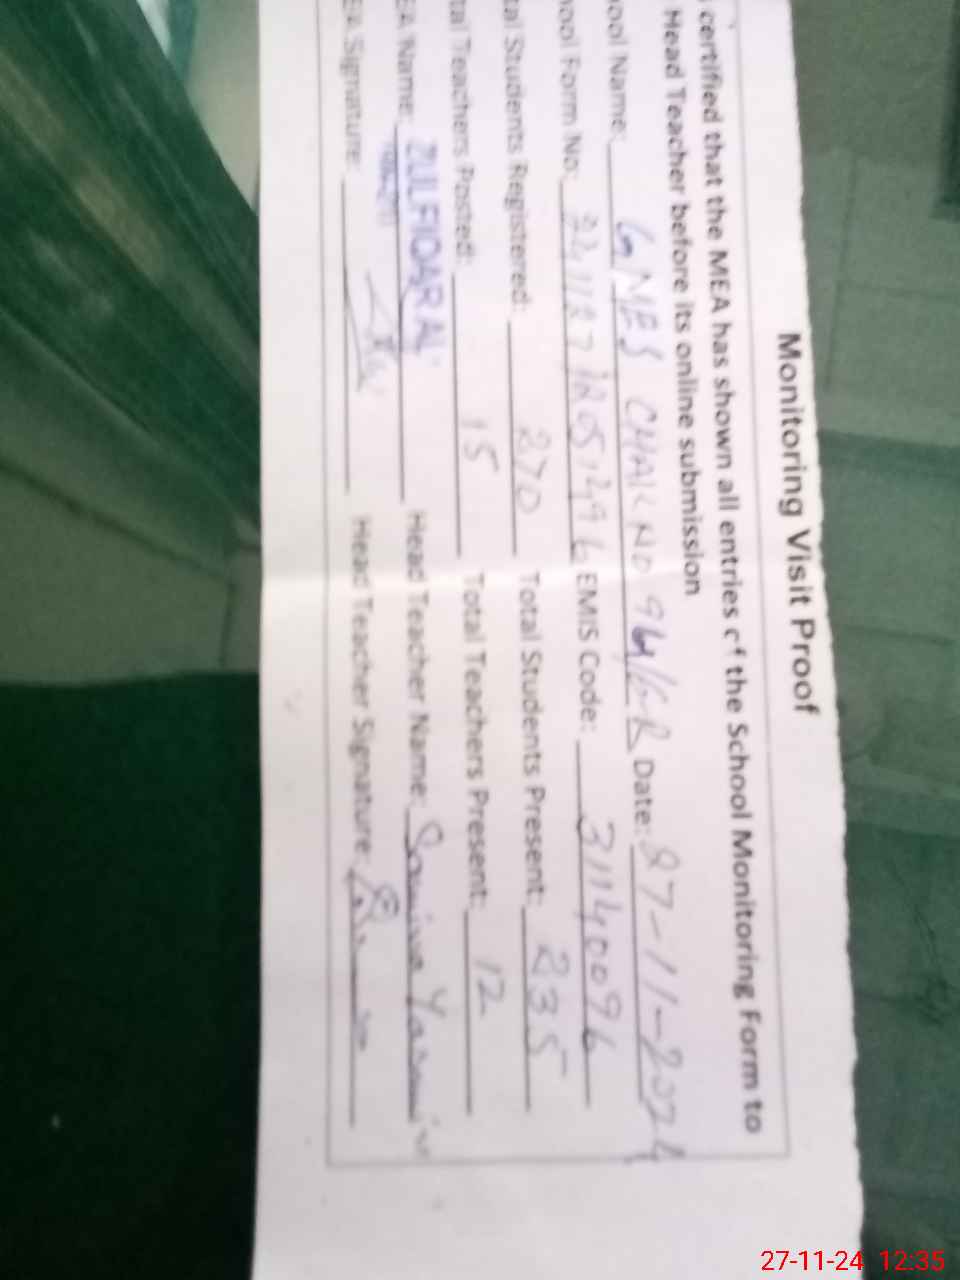 Monitoring Visit Proof
certified that the MEA has shown all entries of the School Monitoring Form to
Head Teacher before its online submission
ool Name: GMES CHAK NO 94/6-R Date: 27-11-2024
ool Form No: EMIS Code: 31140096
tal Students Registered: 270 Total Students Present: 235
tal Teachers Posted: 15 Total Teachers Present: 12
EA Name: ZULFIQAR AL Head Teacher Name: Samina Yasmin
EA Signature: Head Teacher Signature:
27-11-24 12:35